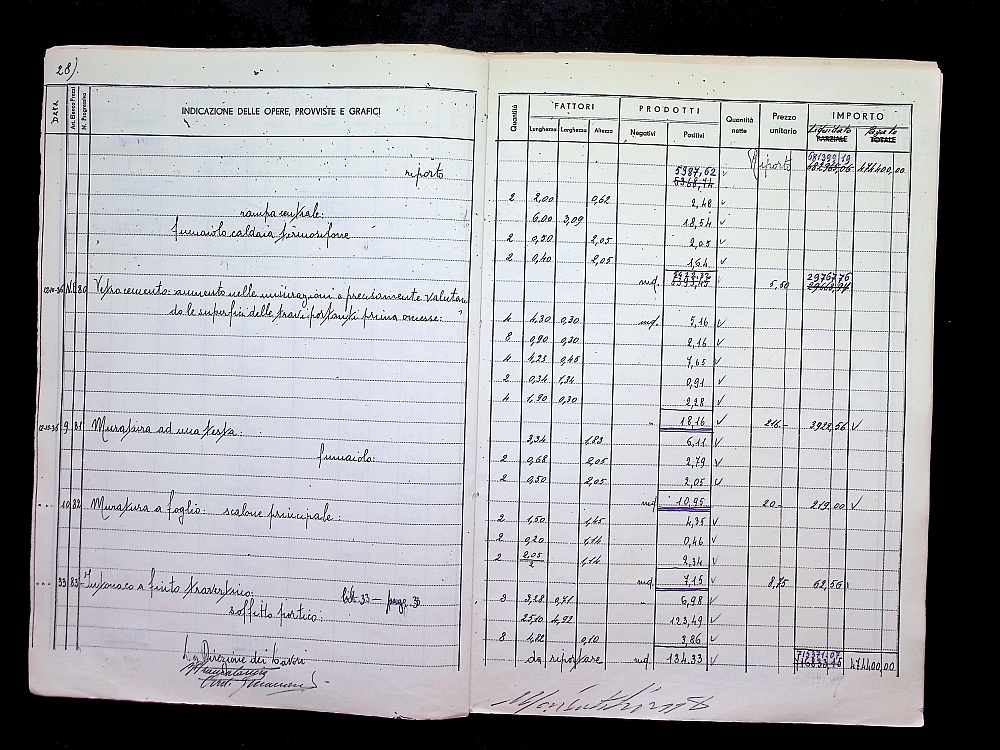 28).
DATA
Art. Elenco Prezzi
N. Progressivo
INDICAZIONE DELLE OPERE, PROVVISTE E GRAFICI
riporto
rampa centrale:
fumaiolo caldaia termosifone
N.P. 80 Vetrocemento: aumento nelle misurazioni e precisamente valutan
do le superfici delle travi portanti prima omesse:
9 81 Muratura ad una testa:
fumaiolo:
10 82 Muratura a foglio: scalone principale:
33 83 Intonaco a finto travertino:
soffitto portico:
La Direzione dei Lavori
Quantità
FATTORI
PRODOTTI
Quantità nette
Prezzo unitario
IMPORTO
Lunghezza Larghezza Altezza
Negativi Positivi
Liquidato
PARZIALE
TOTALE
Riporto 681399,19 474400,00
5387,62
2 2,00 0,62 2,48
6,00 3,09 18,54
2 0,50 2,05 2,05
2 0,40 2,05 1,64
mq. 5,50 29767,76
4 4,30 0,30 mq. 5,16
8 0,90 0,30 2,16
4 4,25 0,45 7,65
2 0,34 1,34 0,91
4 1,90 0,30 2,28
18,16 216- 3922,56
3,34 1,83 6,11
2 0,68 2,05 2,79
2 0,50 2,05 2,05
mq 10,95 20- 219,00
2 1,50 1,45 4,35
2 0,20 1,14 0,46
2 2,05/2 1,14 2,34
mq. 7,15 8,75 62,56
3 3,28 0,71 6,98
25,10 4,92 123,49
8 4,82 0,10 3,86
da riportare mq. 134,33 715371,07 474400,00